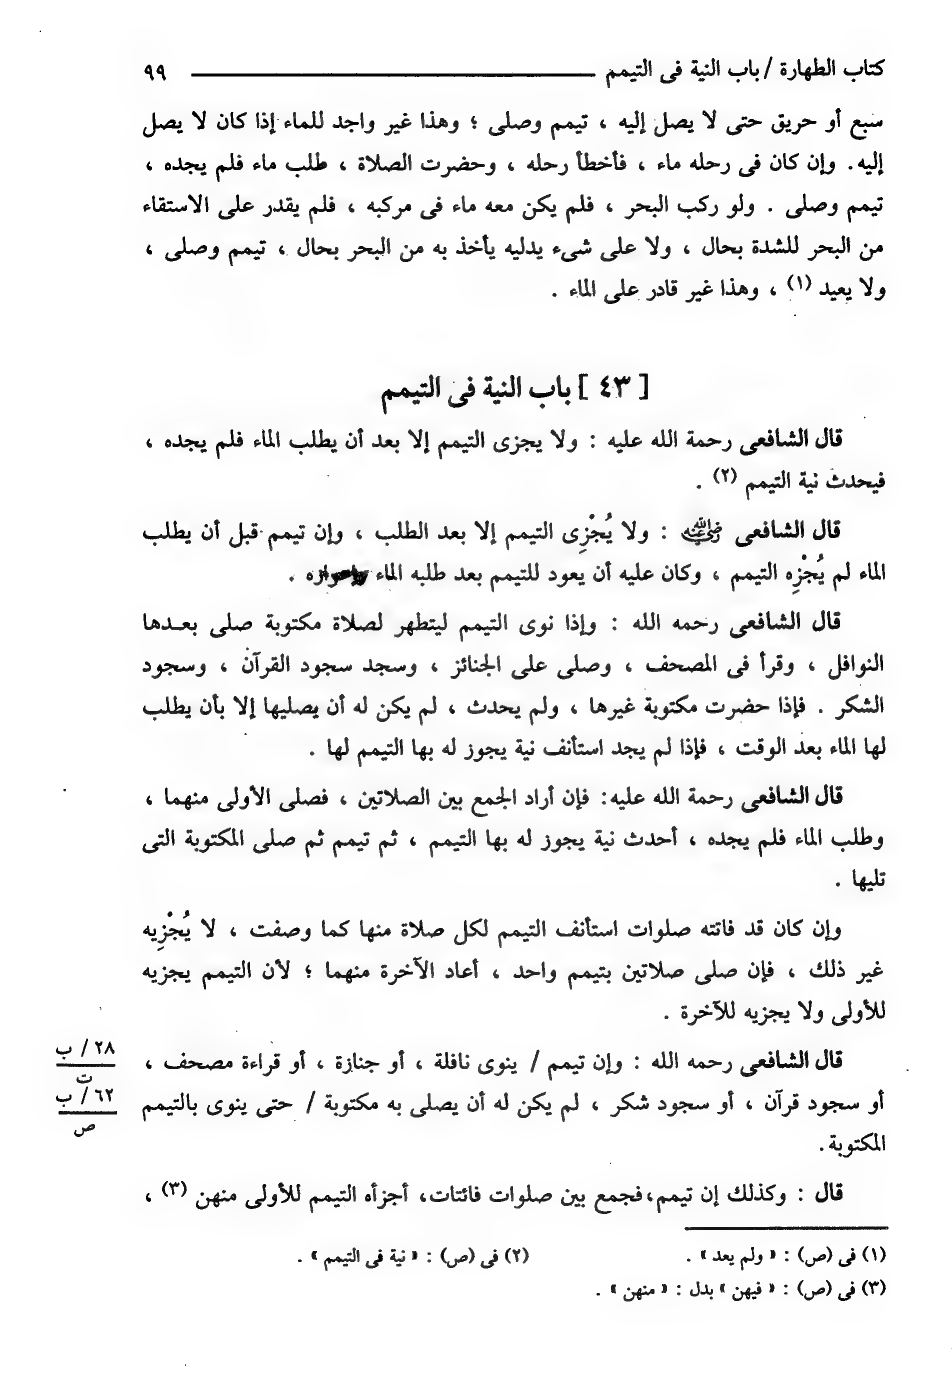 كتاب الطهارة / باب النية فى التيمم ٩٩
سبع أو حريق حتى لا يصل إليه ، تيمم وصلى ؛ وهذا غير واجد للماء إذا كان لا يصل
إليه. وإن كان فى رحله ماء ، فأخطأ رحله ، وحضرت الصلاة ، طلب ماء فلم يجده ،
تيمم وصلى . ولو ركب البحر ، فلم يكن معه ماء فى مركبه ، فلم يقدر على الاستقاء
من البحر للشدة بحال ، ولا على شىء يدليه يأخذ به من البحر بحال ، تيمم وصلى ،
ولا يعيد (١) ، وهذا غير قادر على الماء .
[ ٤٣ ] باب النية فى التيمم
قال الشافعى رحمة الله عليه : ولا يجزى التيمم إلا بعد أن يطلب الماء فلم يجده ،
فيحدث نية التيمم (٢) .
قال الشافعى رضي الله عنه : ولا يُجْزِى التيمم إلا بعد الطلب ، وإن تيمم قبل أن يطلب
الماء لم يُجْزِه التيمم ، وكان عليه أن يعود للتيمم بعد طلبه الماء وإعوازه .
قال الشافعى رحمه الله : وإذا نوى التيمم ليتطهر لصلاة مكتوبة صلى بعدها
النوافل ، وقرأ فى المصحف ، وصلى على الجنائز ، وسجد سجود القرآن ، وسجود
الشكر . فإذا حضرت مكتوبة غيرها ، ولم يحدث ، لم يكن له أن يصليها إلا بأن يطلب
لها الماء بعد الوقت ، فإذا لم يجد استأنف نية يجوز له بها التيمم لها .
قال الشافعى رحمة الله عليه: فإن أراد الجمع بين الصلاتين ، فصلى الأولى منهما ،
وطلب الماء فلم يجده ، أحدث نية يجوز له بها التيمم ، ثم تيمم ثم صلى المكتوبة التى
تليها .
وإن كان قد فاتته صلوات استأنف التيمم لكل صلاة منها كما وصفت ، لا يُجْزِيه
غير ذلك ، فإن صلى صلاتين بتيمم واحد ، أعاد الآخرة منهما ؛ لأن التيمم يجزيه
للأولى ولا يجزيه للآخرة .
قال الشافعى رحمه الله : وإن تيمم / ينوى نافلة ، أو جنازة ، أو قراءة مصحف ،
٢٨/ ب
ت
أو سجود قرآن ، أو سجود شكر ، لم يكن له أن يصلى به مكتوبة / حتى ينوى بالتيمم
٦٢/ ب
ص
المكتوبة.
قال : وكذلك إن تيمم،فجمع بين صلوات فائتات، أجزأه التيمم للأولى منهن (٣) ،
(١) فى (ص) : « ولم يعد » . (٢) فى (ص) : « نية فى التيمم » .
(٣) فى (ص) : « فيهن » بدل : « منهن » .